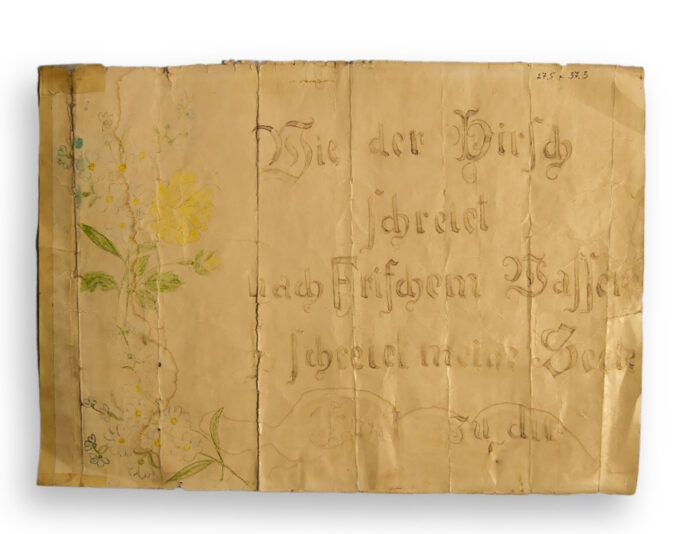 27,5 x 37,5
Wie der Hirsch
schreiet
nach Frischem Wasser
schreiet meine Seele
zu dir